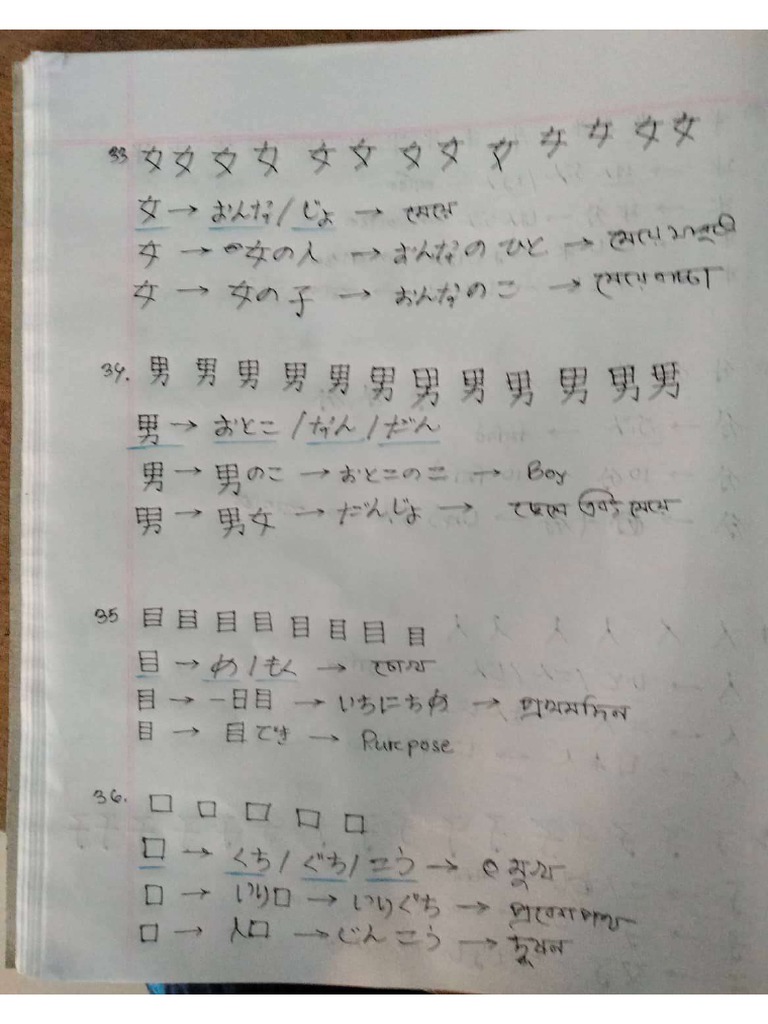 33 女 女 女 女 女 女 女 女 女 女 女 女 女
女 → おんな / じょ → মেয়ে
女 → 女の人 → おんなの ひと → মেয়ে মানুষ
女 → 女の子 → おんなのこ → মেয়ে বাচ্চা
34. 男 男 男 男 男 男 男 男 男 男 男 男
男 → おとこ / なん / だん
男 → 男のこ → おとこのこ → Boy
男 → 男女 → だんじょ → ছেলে এবং মেয়ে
35 目 目 目 目 目 目 目 目
目 → め / もく → চোখ
目 → 一日目 → いちにちめ → প্রথমদিন
目 → 目てき → Purpose
36. 口 口 口 口 口
口 → くち / ぐち / こう → মুখ
口 → いり口 → いりぐち → প্রবেশ পথ
口 → 人口 → じんこう →